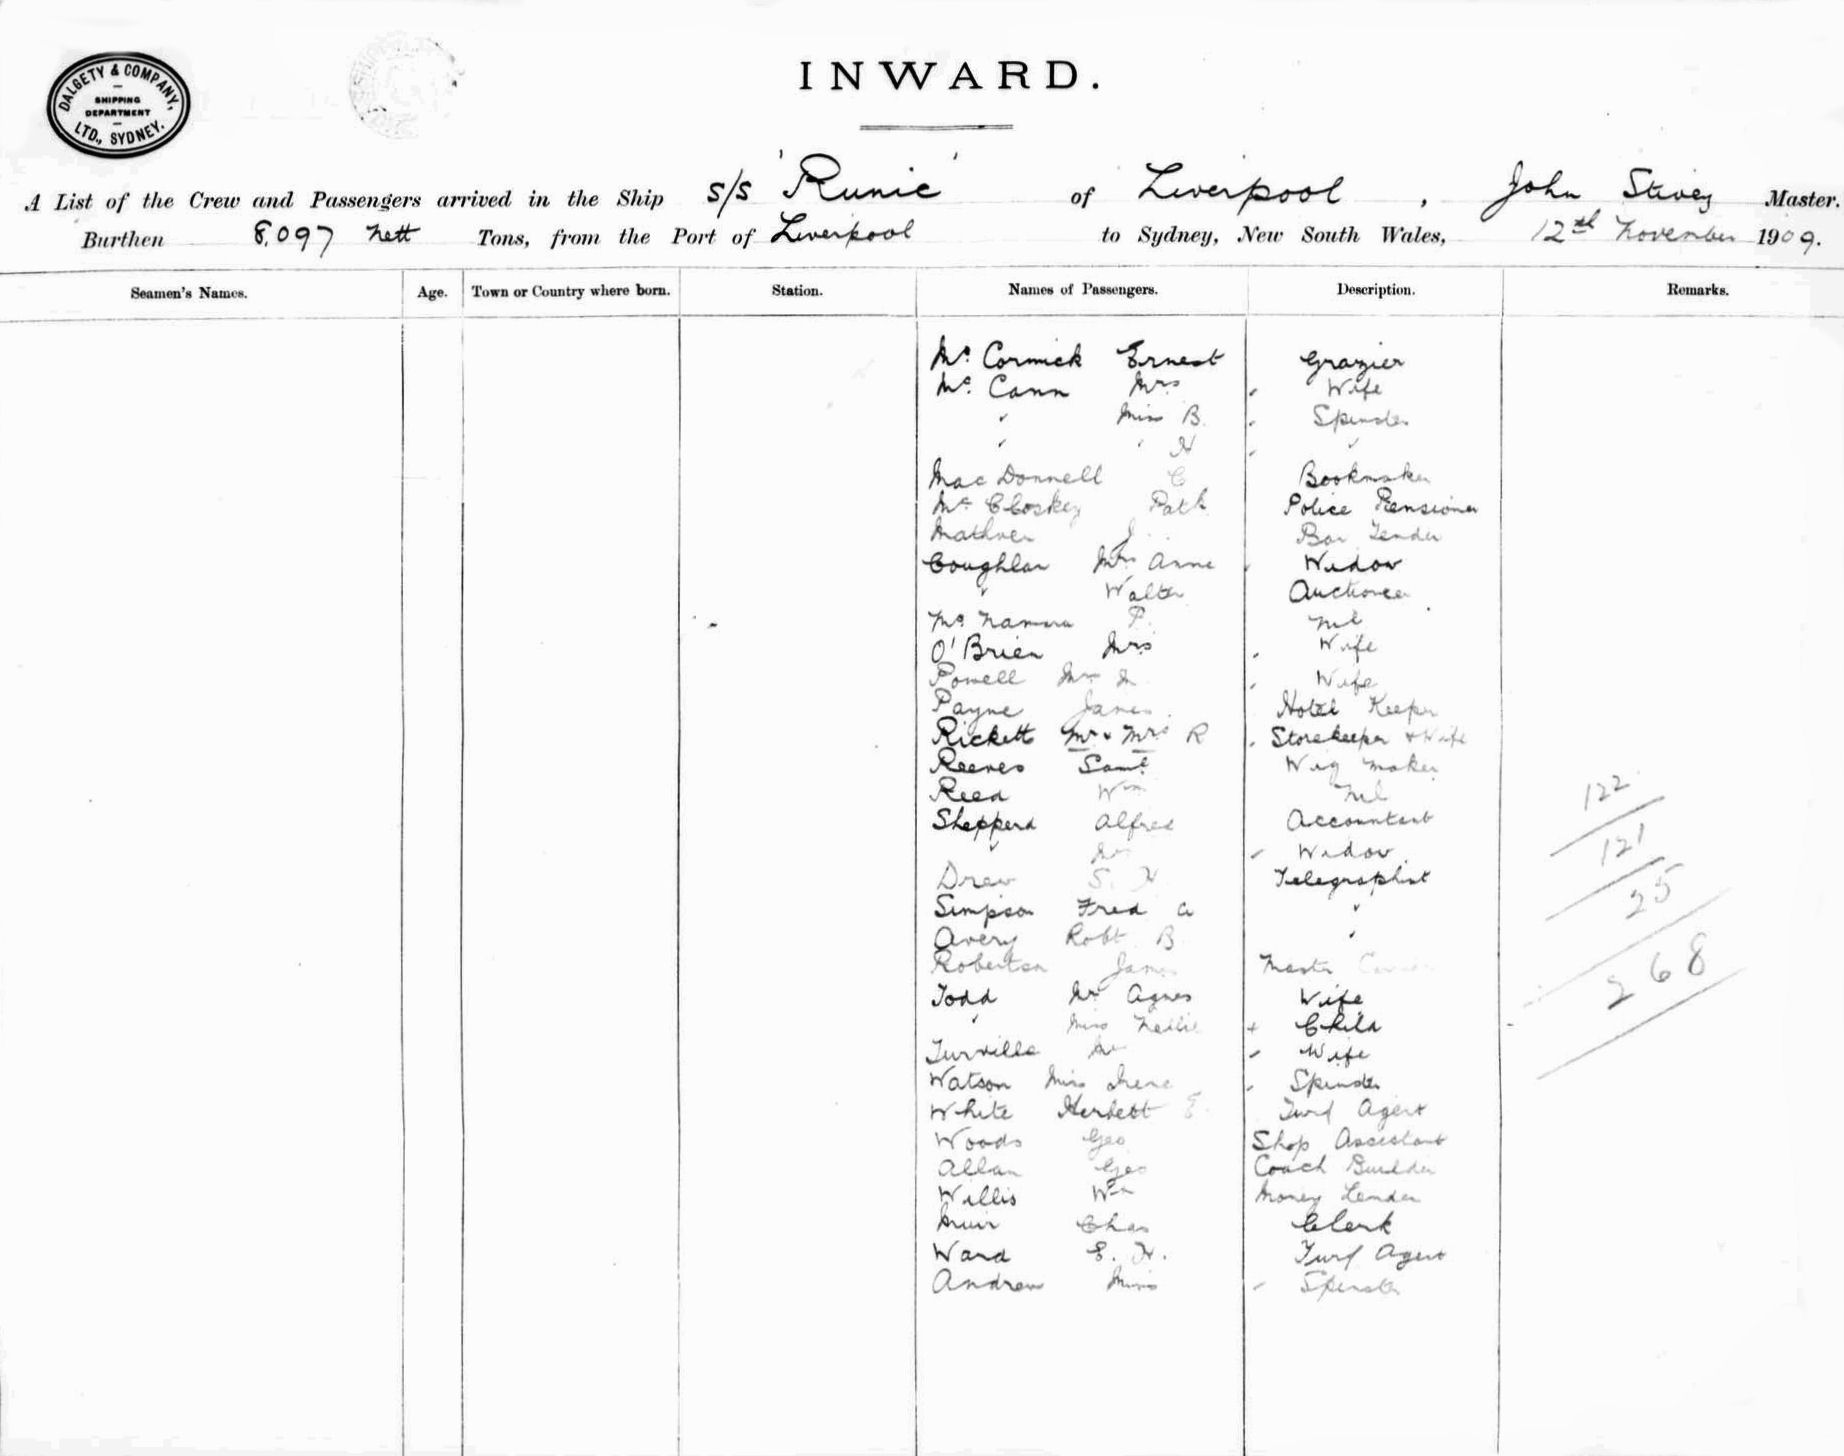 DALGETY & COMPANY,
SHIPPING
DEPARTMENT
LTD., SYDNEY.
INWARD.
A List of the Crew and Passengers arrived in the Ship s/s 'Runic' of Liverpool, John Stivey Master.
Burthen 8,097 nett Tons, from the Port of Liverpool to Sydney, New South Wales, 12th November 1909.
Seamen's Names. Age. Town or Country where born. Station. Names of Passengers. Description. Remarks.
Mc. Cormick Ernest Grazier
Mc. Cann Mrs Wife
" Miss B. Spinster
" " H "
MacDonnell C Bookmaker
Mc Closkey Patk Police Pensioner
J. Bar Tender
Coughlan Mrs Anne Widow
" Walter Auctioneer
Mc. Namara P. nil
O'Brien Mrs Wife
Powell Mrs M Wife
Payne James Hotel Keeper
Rickett Mr & Mrs R Storekeeper & Wife
Reeves Saml Wig Maker
Reed Wm nil
Shepperd Alfred Accountant
" Mrs Widow
Drew S. H Telegraphist
Simpson Fred A "
Avery Robt B "
Robertson James Master
Todd Mrs Agnes Wife
" Miss Nellie Child
Turville Mrs Wife
Watson Miss Irene Spinster
White Herbert E. Turf Agent
Woods Geo Shop Assistant
Allan Geo Coach Builder
Willis Wm Money Lender
Muir Chas Clerk
Ward E. H. Turf Agent
Andrew Miss Spinster
122
121
25
268